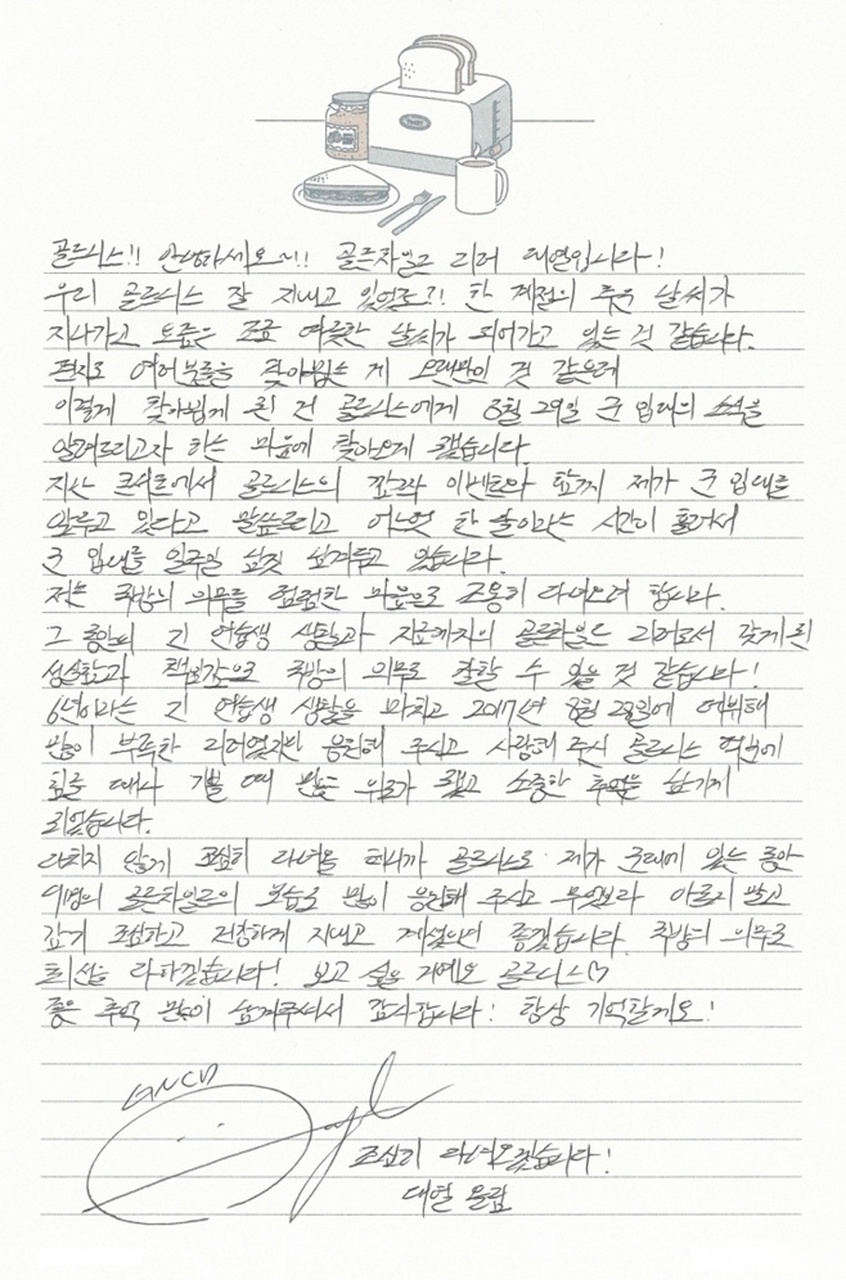 골드니스!! 안녕하세요~!! 골든차일드 리더 대열입니다!
우리 골드니스 잘 지내고 있었죠?! 한 계절의 추운 날씨가
지나가고 요즘은 조금 따뜻한 날씨가 되어가고 있는 것 같습니다.
편지로 여러분들을 찾아뵙는 게 오랜만인 것 같은데
이렇게 찾아뵙게 된 건 골드니스에게 3월 29일 군 입대의 소식을
알려드리고자 하는 마음에 찾아오게 됐습니다.
지난 콘서트에서 골드니스의 깜짝 이벤트와 함께 제가 군 입대를
앞두고 있다고 말씀드리고 어느덧 한 달이라는 시간이 흘러서
군 입대를 일주일 남짓 남겨두고 있습니다.
저는 국방의 의무를 덤덤한 마음으로 조용히 다녀오려 합니다.
그 동안의 긴 연습생 생활과 지금까지의 골든차일드 리더로서 갖게 된
성실함과 책임감으로 국방의 의무로 잘할 수 있을 것 같습니다!
6년이라는 긴 연습생 생활을 마치고 2017년 8월 28일에 데뷔해
많이 부족한 리더였지만 응원해 주시고 사랑해 주신 골드니스 덕분에
힘들 때나 기쁠 때 많은 위로가 됐고 소중한 추억을 남기게
되었습니다.
다치지 않게 조심히 다녀올 테니까 골드니스도 제가 군대에 있는 동안
9명의 골든차일드의 모습도 많이 응원해 주시고 무엇보다 아프지 말고
감기 조심하고 건강하게 지내고 계셨으면 좋겠습니다. 국방의 의무로
최선을 다하겠습니다! 보고 싶을 거예요 골드니스♡
좋은 추억 많이 남겨주셔서 감사합니다! 항상 기억할게요!
GNCD
조심히 다녀오겠습니다!
대열 올림